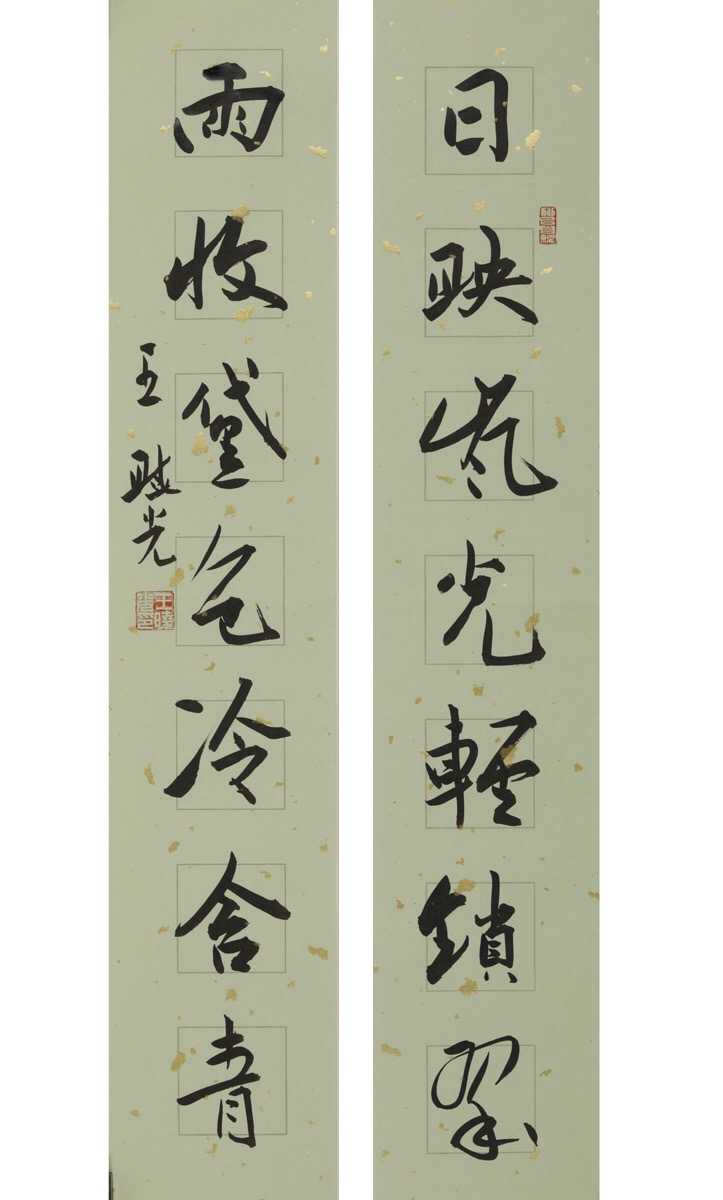 日映嵐光輕鎖翠
雨收黛色冷含青
王曉光
王曉光印